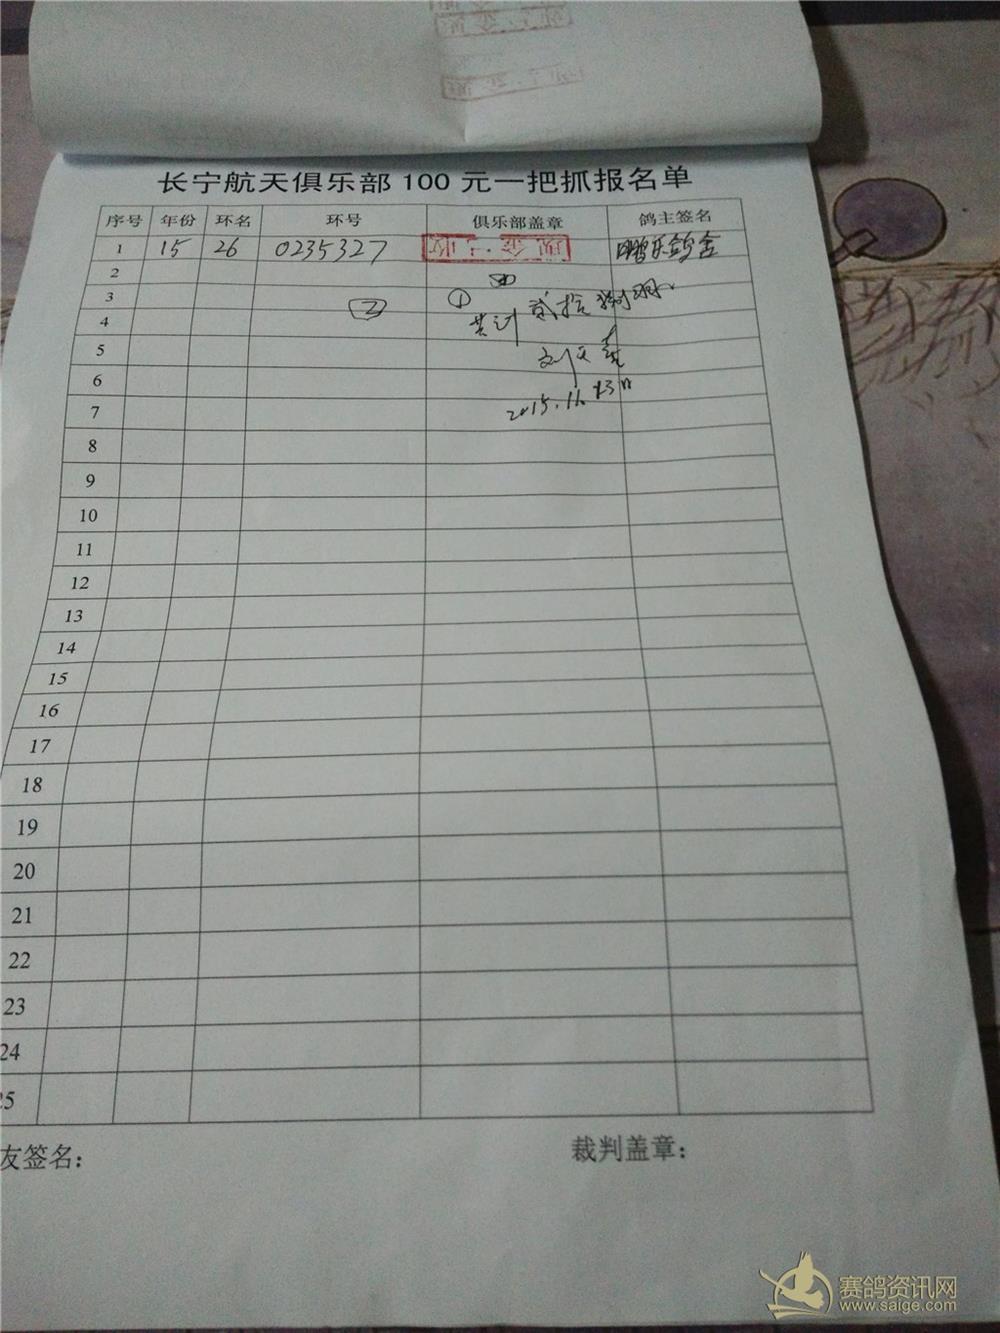 长宁航天俱乐部100元一把抓报名单
序号 年份 环名 环号 俱乐部盖章 鸽主签名
1 15 26 0235327 现金 收 鹏乐鸽舍
2
3 ② ①
4 共计 贰拾捌羽
5
6
7 2015.11.23日
8
9
10
11
12
13
14
15
16
17
18
19
20
21
22
23
24
25
友签名：
裁判盖章：
赛鸽资讯网
www.saige.com